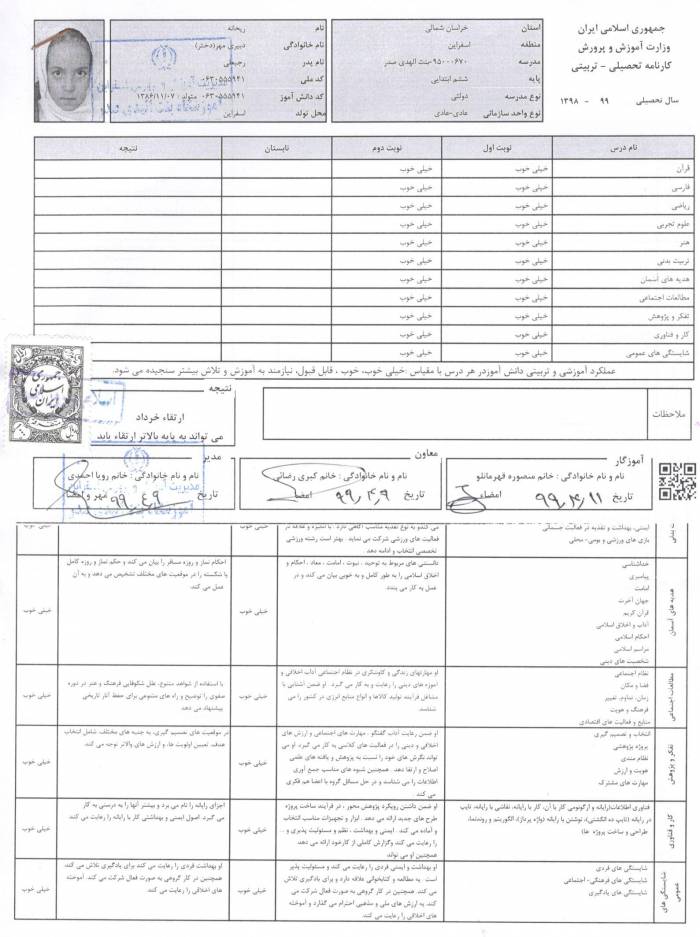 جمهوری اسلامی ایران
وزارت آموزش و پرورش
کارنامه تحصیلی - تربیتی
سال تحصیلی ۹۹ - ۱۳۹۸
استان خراسان شمالی
منطقه اسفراین
مدرسه ۹۵۰۰۰۶۷۰-بنت الهدی صدر
پایه ششم ابتدایی
نوع مدرسه دولتی
نوع واحد سازمانی عادی-عادی
نام ریحانه
نام خانوادگی دبیری مهر(دختر)
نام پدر رجبعلی
کد ملی ۰۶۳۰۵۵۵۹۴۱
کد دانش آموز ۰۶۳۰۵۵۵۹۴۱ متولد: ۱۳۸۶/۱۱/۰۷
محل تولد اسفراین
نام درس نوبت اول نوبت دوم تابستان نتیجه
قرآن خیلی خوب خیلی خوب
فارسی خیلی خوب خیلی خوب
ریاضی خیلی خوب خیلی خوب
علوم تجربی خیلی خوب خیلی خوب
هنر خیلی خوب خیلی خوب
تربیت بدنی خیلی خوب خیلی خوب
هدیه های آسمان خیلی خوب خیلی خوب
مطالعات اجتماعی خیلی خوب خیلی خوب
تفکر و پژوهش خیلی خوب خیلی خوب
کار و فناوری خیلی خوب خیلی خوب
شایستگی های عمومی خیلی خوب خیلی خوب
عملکرد آموزشی و تربیتی دانش آموزدر هر درس با مقیاس :خیلی خوب، خوب ، قابل قبول، نیازمند به آموزش و تلاش بیشتر سنجیده می شود.
جمهوری
اسلامی
ایران
ملاحظات
نتیجه
ارتقاء خرداد
می تواند به پایه بالاتر ارتقاء یابد
آموزگار
نام و نام خانوادگی : خانم منصوره قهرمانلو
تاریخ ۹۹,۴,۱۱ امضاء
معاون
نام و نام خانوادگی : خانم کبری رضائی
تاریخ ۹۹,۴,۹ امضاء
مدیر
نام و نام خانوادگی : خانم رویا احمدی
تاریخ ۹۹,۴,۹ مهر و امضاء
ایمنی، بهداشت و تغذیه در فعالیت جسمانی
بازی های ورزشی و بومی- محلی
فعالیت های ورزشی شرکت می نماید. بهتر است رشته ورزشی
تخصصی انتخاب و ادامه دهد
خیلی خوب
خیلی خوب
هدیه های آسمان
خداشناسی
پیامبری
امامت
جهان آخرت
قرآن کریم
آداب و اخلاق اسلامی
احکام اسلامی
مراسم اسلامی
شخصیت های دینی
دانستنی های مربوط به توحید ، نبوت ، امامت ، معاد ، احکام و
اخلاق اسلامی را به طور کامل و به خوبی بیان می کند و در
عمل به کار می بندد.
خیلی خوب
احکام نماز و روزه مسافر را بیان می کند و حکم نماز و روزه کامل
یا شکسته را در موقعیت های مختلف تشخیص می دهد و به آن
عمل می کند.
خیلی خوب
مطالعات اجتماعی
نظام اجتماعی
فضا و مکان
زمان، تداوم، تغییر
فرهنگ و هویت
منابع و فعالیت های اقتصادی
او مهارتهای زندگی و کاوشگری در نظام اجتماعی آداب اخلاقی و
آموزه های دینی را رعایت و به کار می گیرد. او ضمن آشنایی با
مشاغل فرآیند تولید کالاها و انواع منابع انرژی در کشور را می
شناسد.
خیلی خوب
با استفاده از شواهد متنوع، علل شکوفایی فرهنگ و هنر در دوره
صفوی را توضیح و راه های متنوعی برای حفظ آثار تاریخی
پیشنهاد می دهد.
خیلی خوب
تفکر و پژوهش
انتخاب و تصمیم گیری
پروژه پژوهشی
نظام مندی
هویت و ارزش
مهارت های مشترک
او ضمن رعایت آداب گفتگو . مهارت های اجتماعی و ارزش های
اخلاقی و دینی را در فعالیت های کلاسی به کار می گیرد. او می
تواند نگرش های خود را نسبت به پژوهش و یافته های علمی
اصلاح و ارتقا دهد . همچنین شیوه های مناسب جمع آوری
اطلاعات را می شناسد و در حل مسائل گروه با اعضا هم فکری
می کند
خیلی خوب
در موقعیت های تصمیم گیری، به جنبه های مختلف شامل انتخاب
هدف، تعیین اولویت ها، و ارزش های والاتر توجه می کند.
خیلی خوب
کار و فناوری
فناوری اطلاعات(رایانه و ارگونومی کار با آن، کار با رایانه، نقاشی با رایانه، تایپ
در رایانه (تایپ ده انگشتی)، نوشتن با رایانه (واژه پرداز)، الگوریتم و روندنما،
طراحی و ساخت پروژه ها)
او ضمن داشتن رویکرد پژوهش محور ، در فرآیند ساخت پروژه
طرح های جدید ارائه می دهد . ابزار و تجهیزات مناسب انتخاب
و آماده می کند . ایمنی و بهداشت . نظم و مسئولیت پذیری و ..
را رعایت می کند وگزارش کاملی از کارخود ارائه می دهد
همچنین او می تواند
خیلی خوب
اجزای رایانه را نام می برد و بیشتر آنها را به درستی به کار
می گیرد. اصول ایمنی و بهداشتی کار با رایانه را رعایت می کند.
خیلی خوب
شایستگی های عمومی
شایستگی های فردی
شایستگی های فرهنگی - اجتماعی
شایستگی های یادگیری
او بهداشت و ایمنی فردی را رعایت می کند و مسئولیت پذیر
است . به مطالعه و کتابخوانی علاقه دارد و برای یادگیری تلاش
می کند. همچنین در کار گروهی به صورت فعال شرکت می
کند. به ارزش های ملی و مذهبی احترام می گذارد و آموخته
های اخلاقی را رعایت می کند.
خیلی خوب
او بهداشت فردی را رعایت می کند برای یادگیری تلاش می کند.
همچنین در کار گروهی به صورت فعال شرکت می کند. آموخته
های اخلاقی را رعایت می کند.
خیلی خوب